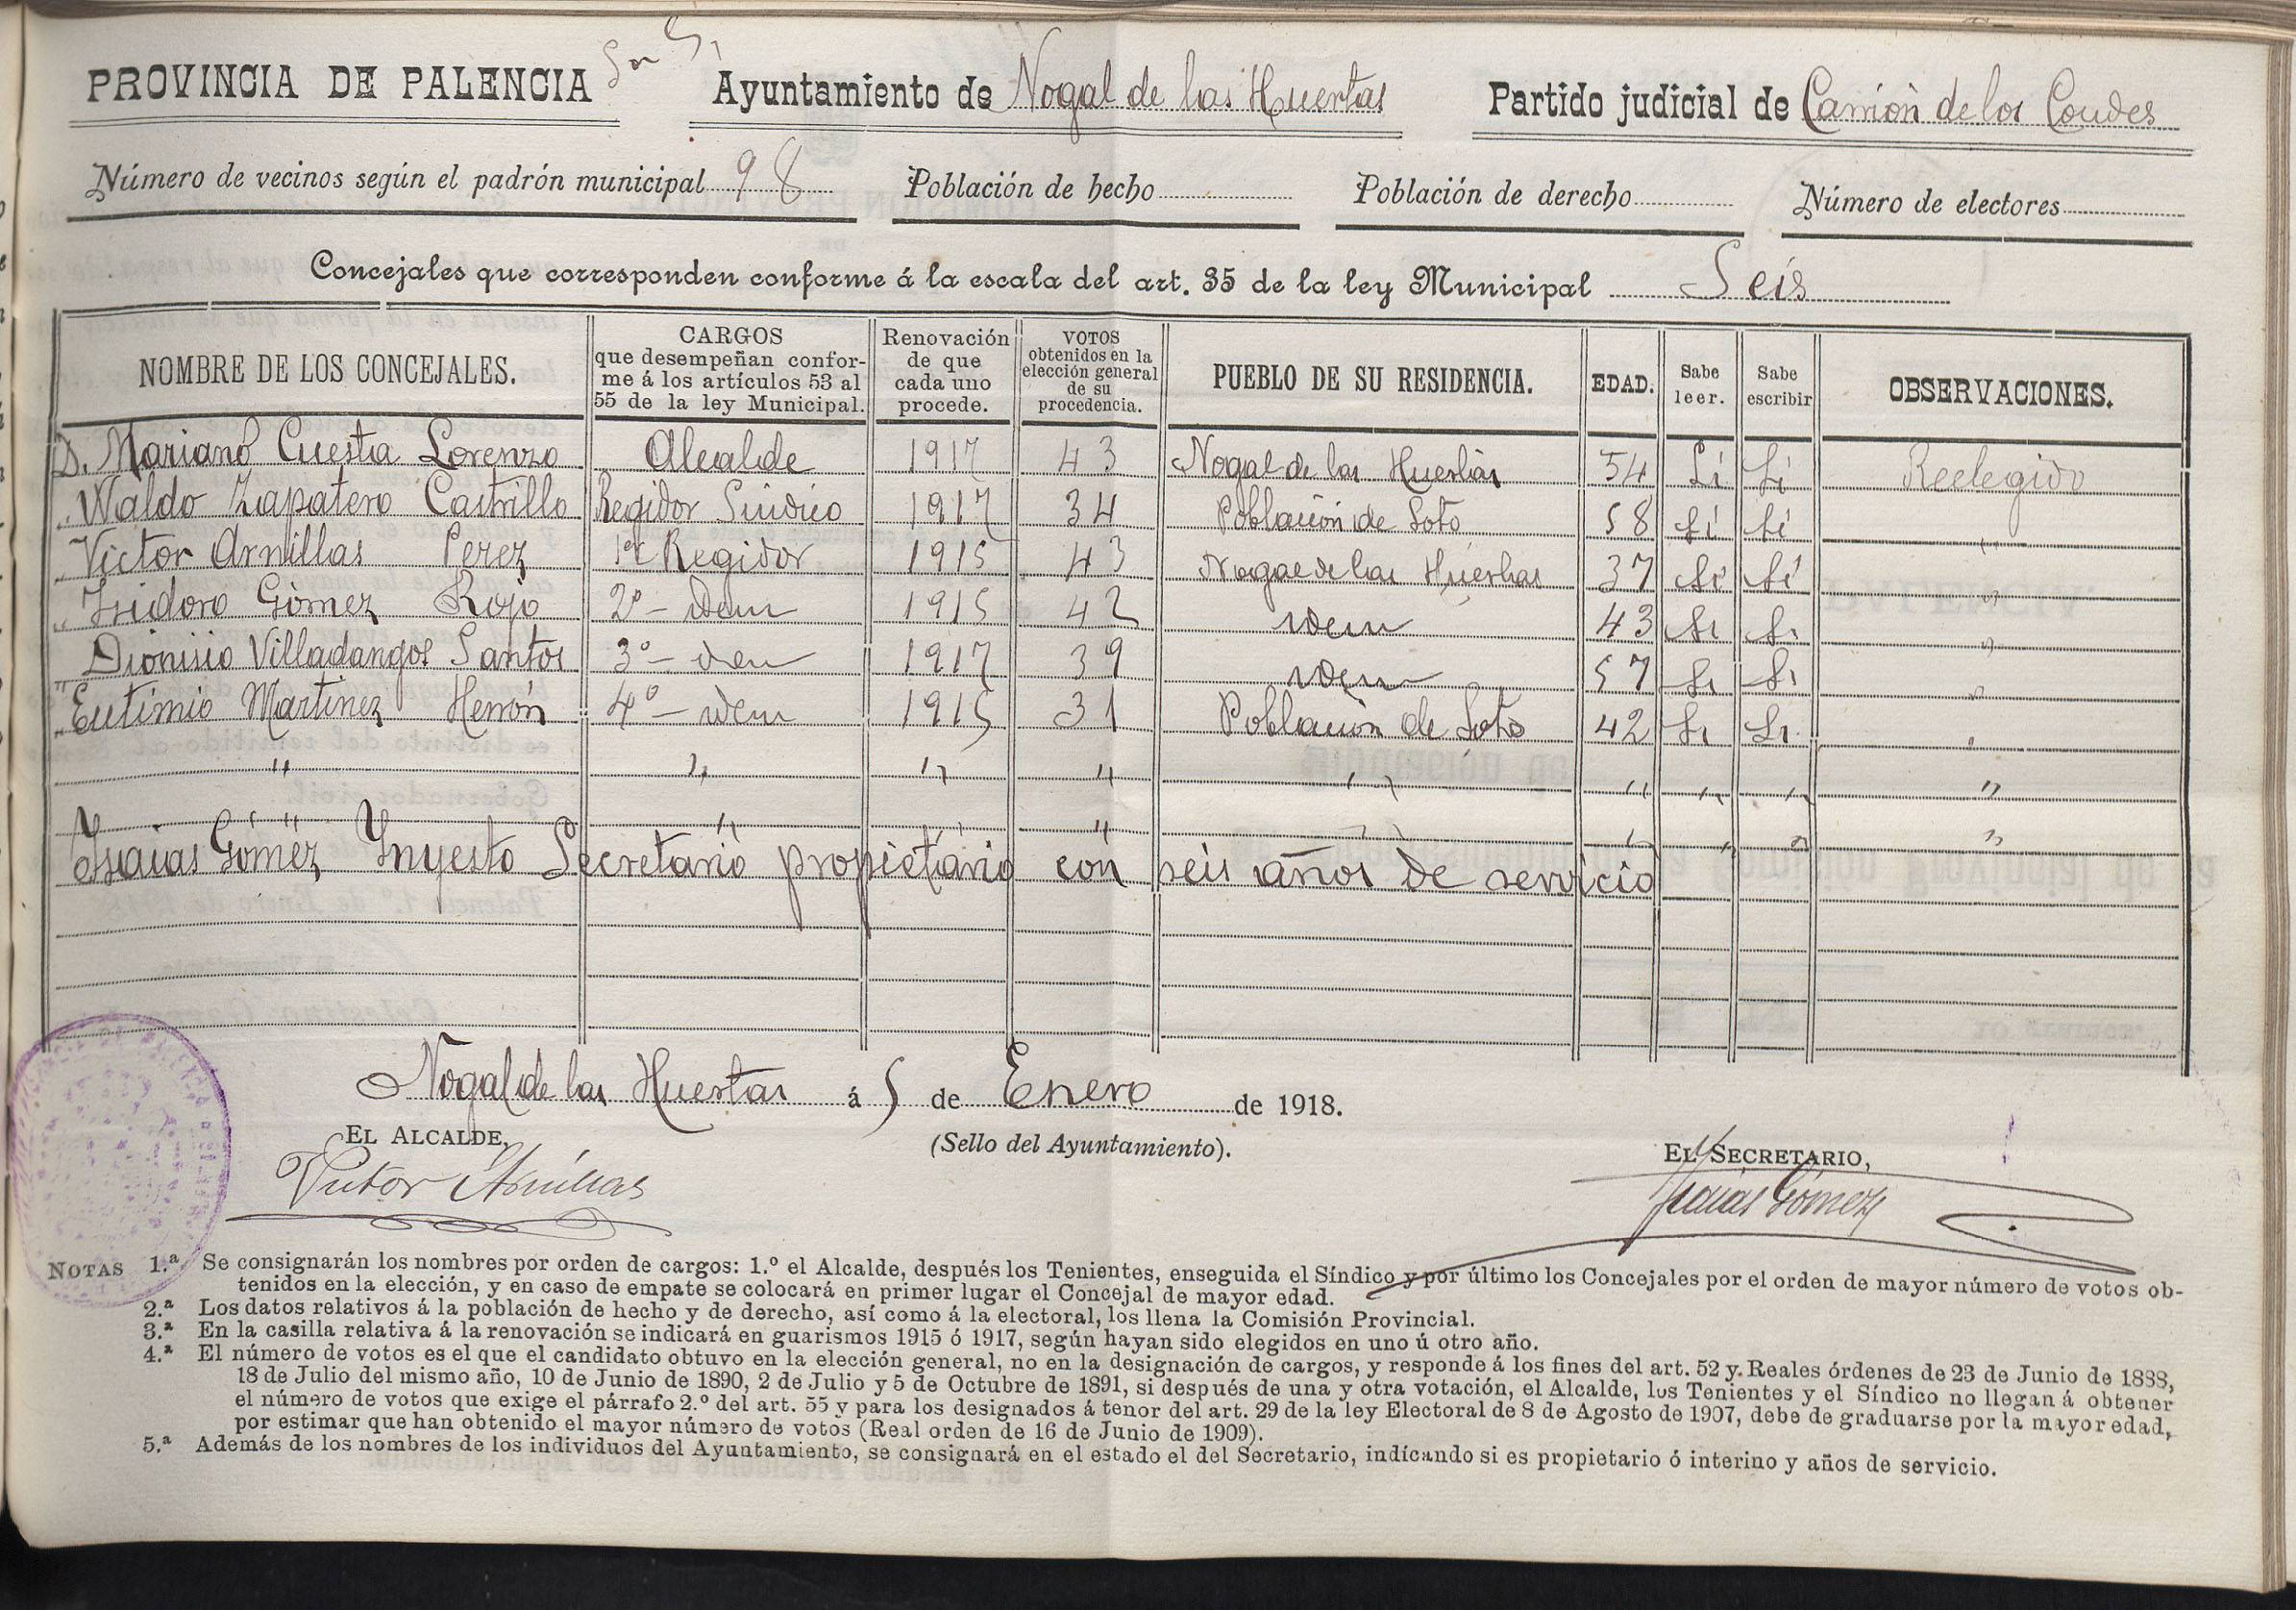 PROVINCIA DE PALENCIA Ayuntamiento de Nogal de las Huertas Partido judicial de Carrión de los Condes
Número de vecinos según el padrón municipal 98 Población de hecho Población de derecho Número de electores
Concejales que corresponden conforme á la escala del art. 35 de la ley Municipal Seis
NOMBRE DE LOS CONCEJALES. CARGOS que desempeñan confor- me á los artículos 53 al 55 de la ley Municipal. Renovación de que cada uno procede. VOTOS obtenidos en la elección general de su procedencia. PUEBLO DE SU RESIDENCIA. EDAD. Sabe leer. Sabe escribir OBSERVACIONES.
D. Mariano Cuesta Lorenzo Alcalde 1917 43 Nogal de las Huertas 54 Sí Sí Reelegido
" Waldo Zapatero Castrillo Regidor Síndico 1917 34 Población de Soto 58 Sí Sí "
" Victor Arnillas Perez 1er Regidor 1915 43 Nogal de las Huertas 37 Sí Sí "
" Isidoro Gómez Rojo 2º - idem 1915 42 idem 43 Si Si "
" Dionisio Villadangos Santos 3º - idem 1917 39 idem 57 Si Si "
" Eutimio Martinez Herrón 4º - idem 1915 31 Población de Soto 42 Si Si "
" " " " " " " " "
" " " " " " " " "
Isaias Gómez Ynyesto Secretario propietario con seis años de servicio
Nogal de las Huertas á 5 de Enero de 1918.
EL ALCALDE, (Sello del Ayuntamiento). EL SECRETARIO,
Victor Arnillas Isaias Gómez
NOTAS 1.ª Se consignarán los nombres por orden de cargos: 1.º el Alcalde, después los Tenientes, enseguida el Síndico y por último los Concejales por el orden de mayor número de votos ob-
tenidos en la elección, y en caso de empate se colocará en primer lugar el Concejal de mayor edad.
2.ª Los datos relativos á la población de hecho y de derecho, así como á la electoral, los llena la Comisión Provincial.
3.ª En la casilla relativa á la renovación se indicará en guarismos 1915 ó 1917, según hayan sido elegidos en uno ú otro año.
4.ª El número de votos es el que el candidato obtuvo en la elección general, no en la designación de cargos, y responde á los fines del art. 52 y Reales órdenes de 23 de Junio de 1888,
18 de Julio del mismo año, 10 de Junio de 1890, 2 de Julio y 5 de Octubre de 1891, si después de una y otra votación, el Alcalde, los Tenientes y el Síndico no llegan á obtener
el número de votos que exige el párrafo 2.º del art. 55 y para los designados á tenor del art. 29 de la ley Electoral de 8 de Agosto de 1907, debe de graduarse por la mayor edad,
por estimar que han obtenido el mayor número de votos (Real orden de 16 de Junio de 1909).
5.ª Además de los nombres de los individuos del Ayuntamiento, se consignará en el estado el del Secretario, indicando si es propietario ó interino y años de servicio.